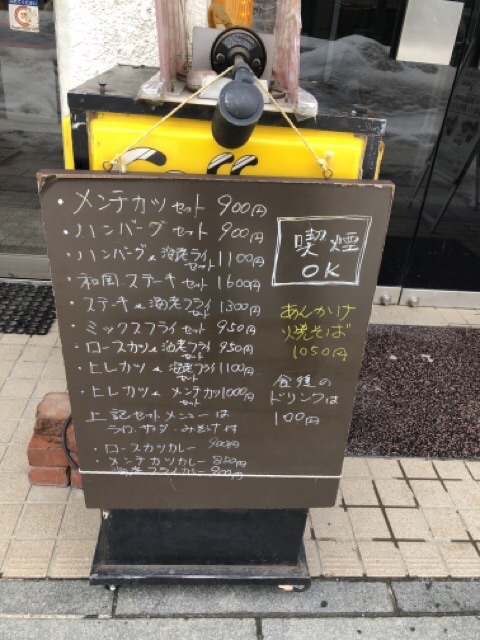 ・メンチカツセット 900円
・ハンバーグセット 900円
・ハンバーグ&海老フライセット 1100円
・和風ステーキセット 1600円
・ステーキ&海老フライセット 1300円
・ミックスフライセット 950円
・ロースカツ&海老フライセット 950円
・ヒレカツ&海老フライセット 1100円
・ヒレカツ&メンチカツセット 1000円
上記セットメニューは
ライス、サラダ、みそ汁付
・ロースカツカレー 900円
・メンチカツカレー 850円
海老フライカレー 900円
喫煙
OK
あんかけ
焼そば
1050円
食後の
ドリンクは
100円